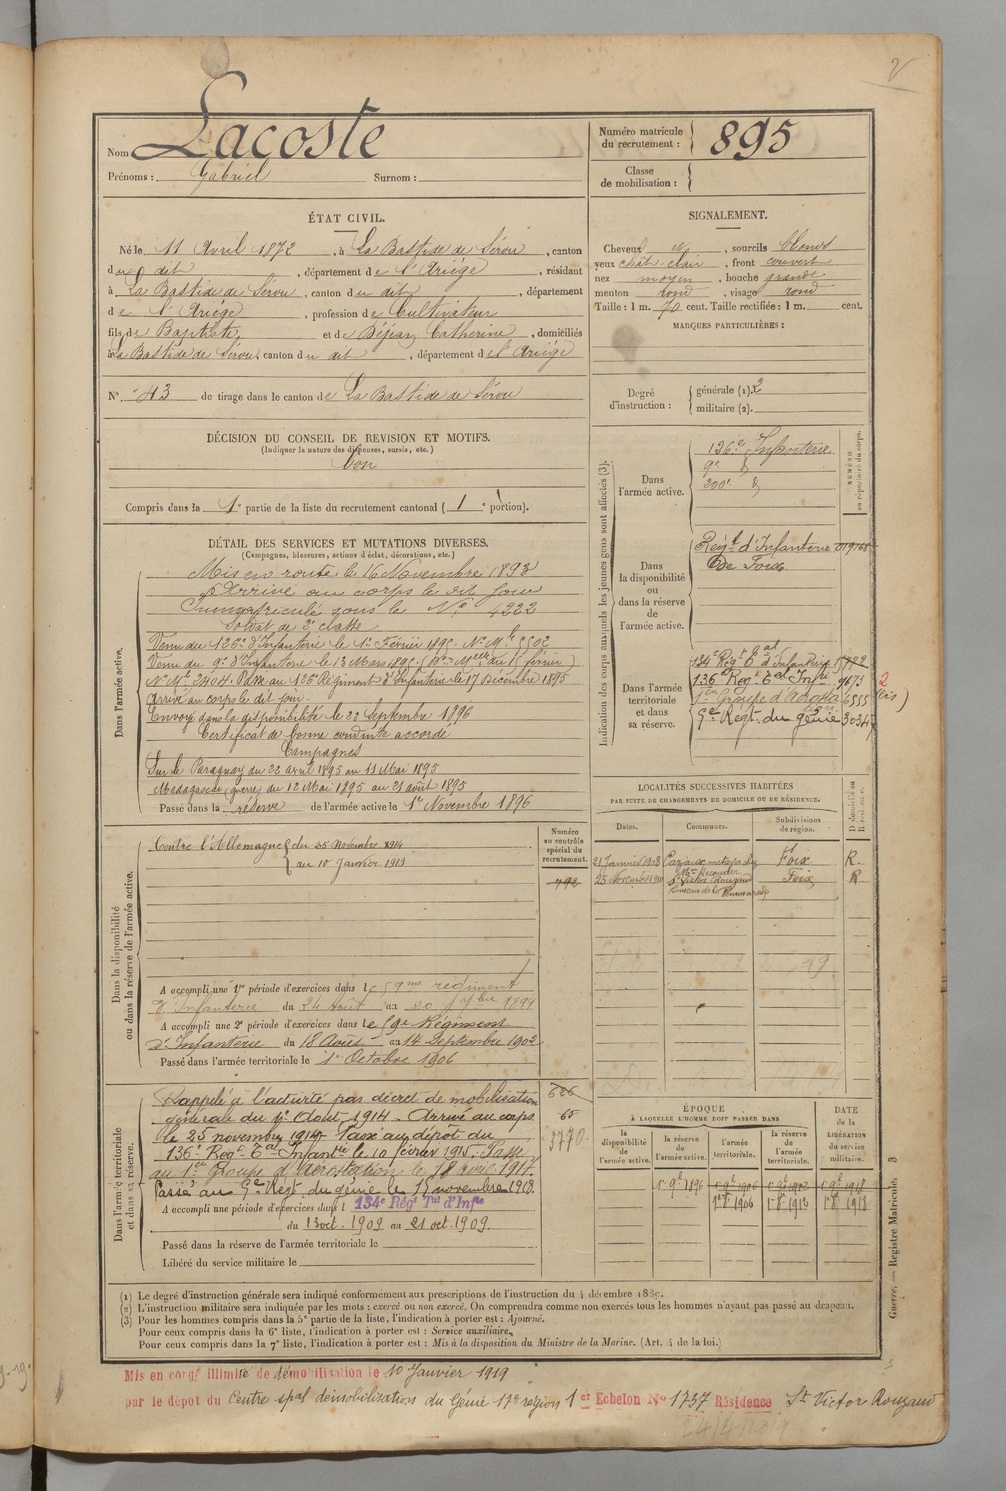 Nom Lacoste
Prénoms : Gabriel Surnom :
Numéro matricule du recrutement : 895
Classe de mobilisation :
ÉTAT CIVIL.
Né le 11 Avril 1872, à La Bastide de Sérou, canton
du dit, département de l'Ariège, résidant
à La Bastide de Sérou, canton du dit, département
de l'Ariège, profession de Cultivateur
fils de Baptiste, et de Déjean Catherine, domiciliés
à La Bastide de Sérou, canton du dit, département de l'Ariège
N° 43 de tirage dans le canton de La Bastide de Sérou
DÉCISION DU CONSEIL DE REVISION ET MOTIFS.
(Indiquer la nature des dispenses, sursis, etc.)
bon
Compris dans la 1e partie de la liste du recrutement cantonal ( 1e portion).
SIGNALEMENT.
Cheveux et, sourcils blonds
yeux chat-clair, front couvert
nez moyen, bouche grande
menton rond, visage rond
Taille : 1 m. 70 cent. Taille rectifiée : 1 m. cent.
MARQUES PARTICULIÈRES :
Degré d'instruction : générale (1). 2
militaire (2).
DÉTAIL DES SERVICES ET MUTATIONS DIVERSES.
(Campagnes, blessures, actions d'éclat, décorations, etc.)
Dans l'armée active.
Mis en route le 16 Novembre 1893
Arrivé au corps le dit jour
Immatriculé sous le N° 4222
Soldat de 2e classe
Venu du 126e d'Infanterie le 1er Février 1895. N° Mle 5502
Venu du 9e d'Infanterie le 13 Mars 1895
N° Mle 2404. Passé au 126e Régiment d'Infanterie le 17 Décembre 1895
Arrivé au corps le dit jour.
Envoyé dans la disponibilité le 22 Septembre 1896
Certificat de bonne conduite accordé
Campagnes
Sur le Paraguay du 22 avril 1895 au 11 Mai 1895
Madagascar (guerre) du 12 Mai 1895 au 21 août 1895
Passé dans la réserve de l'armée active le 1er Novembre 1896
Indication des corps auxquels les jeunes gens sont affectés (3).
NUMÉRO au répertoire du corps.
Dans l'armée active.
126e Infanterie
9e d°
200e d°
Dans la disponibilité ou dans la réserve de l'armée active.
Régt d'Infanterie 019168
De Foix
Dans l'armée territoriale et dans sa réserve.
134e Régt Tal d'Infanterie
136e Régt Tal Infie 9673
1er Groupe d'Aérosta 6555 (bis)
2
5e Régt du génie 30347
Dans la disponibilité ou dans la réserve de l'armée active.
Numéro au contrôle spécial du recrutement.
Contre l'Allemagne du 25 Novembre 1914
au 10 Janvier 1919
792
A accompli une 1re période d'exercices dans le 59me régiment
d'Infanterie du 24 Août au 20 7bre 1899
A accompli une 2e période d'exercices dans le 59e Régiment
d'Infanterie du 18 Août au 14 Septembre 1902
Passé dans l'armée territoriale le 1er Octobre 1906
LOCALITÉS SUCCESSIVES HABITÉES
PAR SUITE DE CHANGEMENTS DE DOMICILE OU DE RÉSIDENCE.
Dates. Communes. Subdivisions de région. D domicile ou R résidence.
21 Janvier 1908 Cazaux métayer chez Foix R.
25 Novembre 1910 St Victor Rouzaud Foix R
Dans l'armée territoriale et dans sa réserve.
Rappelé à l'activité par décret de mobilisation
générale du 1er Août 1914 - Arrivé au corps
le 25 novembre 1914. Passé au dépôt du
136e Régt Tal Infantie le 10 février 1915. Passé
au 1er groupe d'Aérostation le 18 1917.
Passé au 5e Régt du génie le 15 novembre 1918.
A accompli une période d'exercices dans l 134e Régt Tal d'Infie
du 13 oct. 1909 au 21 oct. 1909.
Passé dans la réserve de l'armée territoriale le
Libéré du service militaire le
626
65
3770
ÉPOQUE
À LAQUELLE L'HOMME DOIT PASSER DANS
la disponibilité de l'armée active. la réserve de l'armée active. l'armée territoriale. la réserve de l'armée territoriale. DATE de la LIBÉRATION du service militaire.
1er 9e 1896 1er 9e 1906 1er 9e 1912 1er 9e 1918
1er 8e 1906 1er 8e 1912 1er 8e 1918
Guerre. — Registre Matricule. 3
(1) Le degré d'instruction générale sera indiqué conformément aux prescriptions de l'instruction du 4 décembre 1889.
(2) L'instruction militaire sera indiquée par les mots : exercé ou non exercé. On comprendra comme non exercés tous les hommes n'ayant pas passé au drapeau.
(3) Pour les hommes compris dans la 5e partie de la liste, l'indication à porter est : Ajourné.
Pour ceux compris dans la 6e liste, l'indication à porter est : Service auxiliaire.
Pour ceux compris dans la 7e liste, l'indication à porter est : Mis à la disposition du Ministre de la Marine. (Art. 4 de la loi.)
Mis en congé illimité de démobilisation le 10 Janvier 1919
par le dépôt du Centre spal démobilisation du Génie 17e région 1er Echelon N° 1737 Résidence St Victor Rouzaud